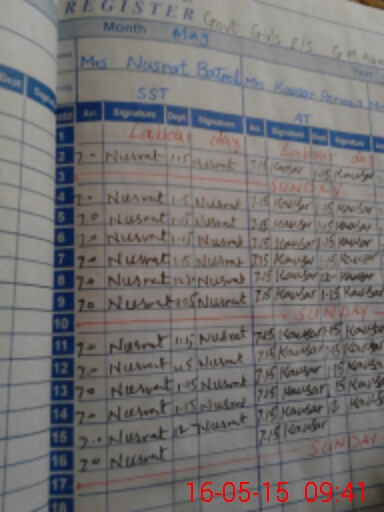 REGISTER Govt Girls E/S
Month May Year
Mrs Nusrat Mrs Kausar Parveen
SST AT
Arr. Signature Dept. Signature Arr. Signature Dept. Signature
1 Labour day Labour day
2 7.0 Nusrat 1:15 Nusrat 7.15 Kausar 1.15 Kausar
3 SUNDAY
4 7.0 Nusrat 1.15 Nusrat 7.15 Kausar 1.15 Kausar
5 7.0 Nusrat 1.15 Nusrat 7.15 Kausar 1.15 Kausar
6 7.0 Nusrat 1.15 Nusrat 7.15 Kausar 1.15 Kausar
7 7.0 Nusrat 1.15 Nusrat 7.15 Kausar 1.15 Kausar
8 7.0 Nusrat Nusrat 7.15 Kausar 12 Kausar
9 7.0 Nusrat Nusrat 7.15 Kausar 1.15 Kausar
10 SUNDAY
11 7.0 Nusrat 1:15 Nusrat 7.15 Kausar 1.15 Kausar
12 7.0 Nusrat Nusrat 7.15 Kausar 1.15 Kausar
13 7.0 Nusrat 1.15 Nusrat 7.15 Kausar 1.15 Kausar
14 7.0 Nusrat 1.15 Nusrat 7.15 Kausar 12 Kausar
15 7.0 Nusrat 12 Nusrat 7.15 Kausar
16 7.0 Nusrat
17 SUNDAY
18
16-05-15 09:41